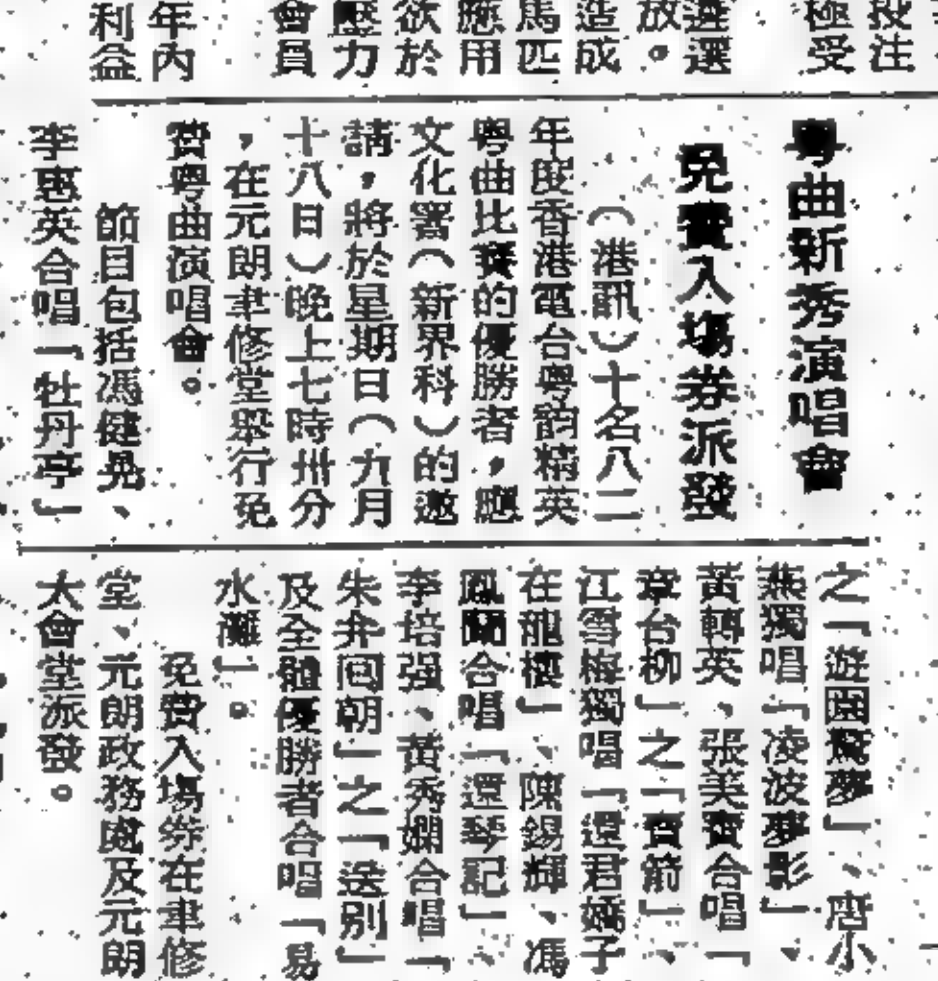 投注
極受
遴選
放。
造成
馬匹
應用
欲於
壓力
會員
年內
利益
粤曲新秀演唱會
免費入塲券派發
（港訊）十名八二
年度香港電台粤韵精英
粤曲比賽的優勝者，應
文化署（新界科）的邀
請，將於星期日（九月
十八日）晚上七時卅分
，在元朗聿修堂舉行免
費粤曲演唱會。
節目包括馮健晃、
李惠英合唱「牡丹亭」
之「遊園驚夢」、唐小
燕獨唱「凌波夢影」、
黃轉英、張美寶合唱「
章台柳」之「寶箭」、
江雪梅獨唱「還君嬌子
在龍樓」、陳錫輝、馮
鳳蘭合唱「還琴記」、
李培强、黃秀嫻合唱「
朱弁回朝」之「送别」
及全體優勝者合唱「易
水離」。
免費入塲券在聿修
堂、元朗政務處及元朗
大會堂派發。